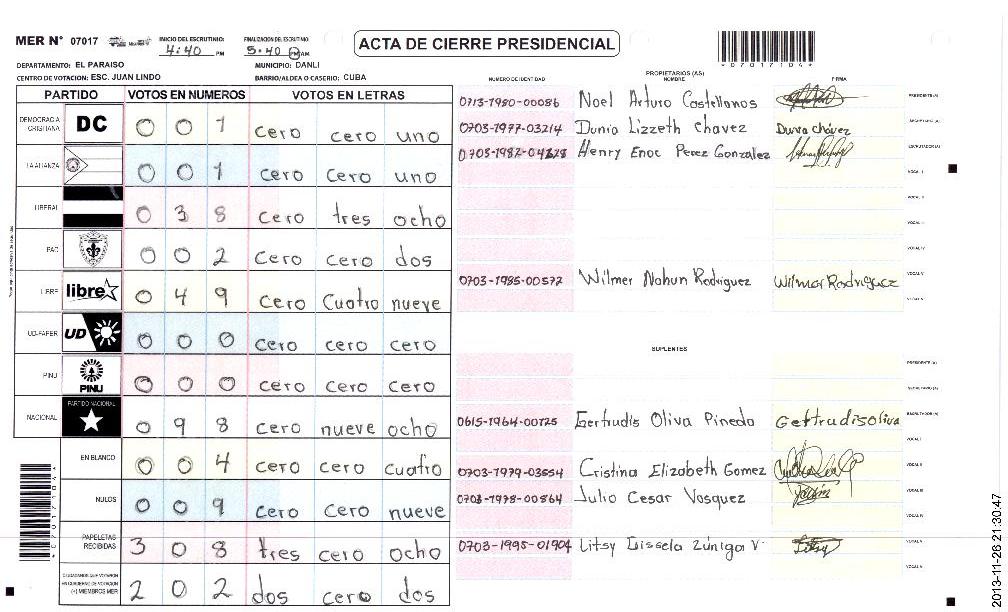 MER N° 07017
INICIO DEL ESCRUTINIO:
4:40 PM
FINALIZACION DEL ESCRUTINIO:
5:40 PM AM
ACTA DE CIERRE PRESIDENCIAL
*07017104*
DEPARTAMENTO: EL PARAISO
MUNICIPIO: DANLI
CENTRO DE VOTACION: ESC. JUAN LINDO
BARRIO/ALDEA O CASERIO: CUBA
PARTIDO VOTOS EN NUMEROS VOTOS EN LETRAS
DEMOCRACIA CRISTIANA DC 0 0 1 cero cero uno
LA ALIANZA 0 0 1 cero cero uno
LIBERAL 0 3 8 cero tres ocho
PAC 0 0 2 cero cero dos
LIBRE libre 0 4 9 cero cuatro nueve
UD-FAPER UD 0 0 0 cero cero cero
PINU PINU 0 0 0 cero cero cero
NACIONAL PARTIDO NACIONAL 0 9 8 cero nueve ocho
EN BLANCO 0 0 4 cero cero cuatro
NULOS 0 0 9 cero cero nueve
PAPELETAS RECIBIDAS 3 0 8 tres cero ocho
CIUDADANOS QUE VOTARON EN CUADERNO DE VOTACION (+) MIEMBROS MER 2 0 2 dos cero dos
*07017104*
PROPIETARIOS (AS)
NUMERO DE IDENTIDAD NOMBRE FIRMA
0713-1980-00086 Noel Arturo Castellanos PRESIDENTE (A)
0703-1977-03214 Dunia Lizzeth Chavez Dunia Chávez SECRETARIO (A)
Henry Enoc Perez Gonzalez ESCRUTADOR (A)
VOCAL I
VOCAL II
VOCAL III
VOCAL IV
0703-1985-00572 Wilmer Nahun Rodriguez Wilmer Rodriguez VOCAL V
SUPLENTES
PRESIDENTE (A)
SECRETARIO (A)
0615-1964-00725 Gertrudis Oliva Pineda Gertrudis oliva ESCRUTADOR (A)
VOCAL I
0703-1979-03554 Cristina Elizabeth Gomez VOCAL II
0703-1978-00864 Julio Cesar Vasquez VOCAL III
VOCAL IV
0703-1995-01904 Litsy Gissela Zúniga V. Litsy VOCAL V
2013-11-26 21:30:47